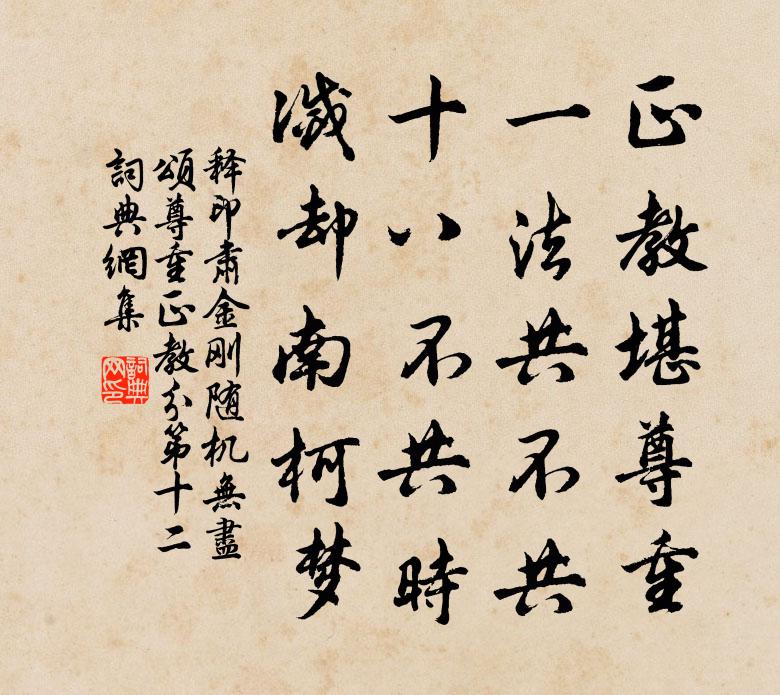 正教堪尊重
一法共不共
十八不共時
滅却南柯梦
释印肃金刚随机無盡
頌尊重正教分第十二
詞典網集
詞典网印